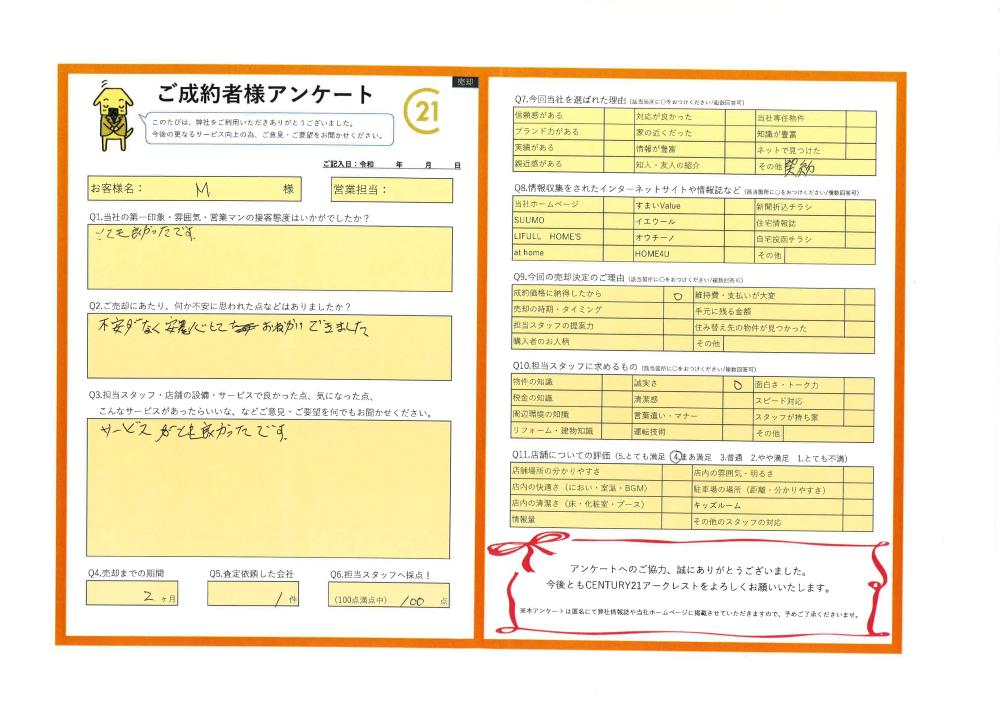 売却
ご成約者様アンケート
21
このたびは、弊社をご利用いただきありがとうございました。
今後の更なるサービス向上の為、ご意見・ご要望をお聞かせください。
ご記入日：令和　年　月　日
お客様名： M 様
営業担当：
Q1.当社の第一印象・雰囲気・営業マンの接客態度はいかがでしたか？
とても良かったです。
Q2.ご売却にあたり、何か不安に思われた点などはありましたか？
不安がなく安心して おねがいできました
Q3.担当スタッフ・店舗の設備・サービスで良かった点、気になった点、
こんなサービスがあったらいいな、などご意見・ご要望を何でもお聞かせください。
サービス がとも良かったです。
Q4.売却までの期間
2 ヶ月
Q5.査定依頼した会社
1 件
Q6.担当スタッフへ採点！
(100点満点中) 100 点
Q7.今回当社を選ばれた理由 (該当箇所に○をおつけください/複数回答可)
信頼感がある 対応が良かった 当社専任物件
ブランド力がある 家の近くだった 知識が豊富
実績がある 情報が豊富 ネットで見つけた
親近感がある 知人・友人の紹介 その他
Q8.情報収集をされたインターネットサイトや情報誌など (該当箇所に○をおつけください/複数回答可)
当社ホームページ すまいValue 新聞折込チラシ
SUUMO イエウール 住宅情報誌
LIFULL HOME'S オウチーノ 自宅投函チラシ
at home HOME4U その他
Q9.今回の売却決定のご理由 (該当箇所に○をおつけください/複数回答可)
成約価格に納得したから ○ 維持費・支払いが大変
売却の時期・タイミング 手元に残る金額
担当スタッフの提案力 住み替え先の物件が見つかった
購入者のお人柄 その他
Q10.担当スタッフに求めるもの (該当箇所に○をおつけください/複数回答可)
物件の知識 誠実さ ○ 面白さ・トーク力
税金の知識 清潔感 スピード対応
周辺環境の知識 言葉遣い・マナー スタッフが持ち家
リフォーム・建物知識 運転技術 その他
Q11.店舗についての評価 (5.とても満足 4.まあ満足 3.普通 2.やや満足 1.とても不満)
店舗場所の分かりやすさ 店内の雰囲気・明るさ
店内の快適さ（におい・室温・BGM） 駐車場の場所（距離・分かりやすさ）
店内の清潔さ（床・化粧室・ブース） キッズルーム
情報量 その他のスタッフの対応
アンケートへのご協力、誠にありがとうございました。
今後ともCENTURY21アークレストをよろしくお願いいたします。
※本アンケートは匿名にて弊社情報誌や当社ホームページに掲載させていただきますので、予めご了承くださいませ。